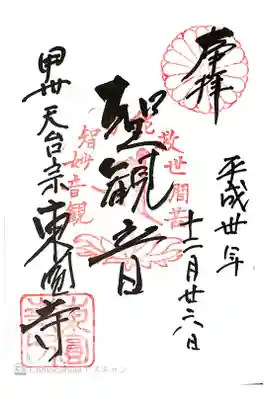 奉拝
平成卅年
十二月廿六日
聖観音
観音妙智
能救世間苦
甲州 天台宗 東圓寺
CamScanner でスキャン